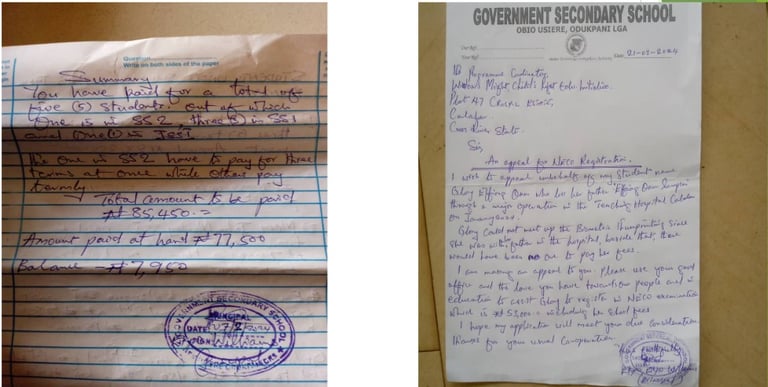 Question
Write on both sides of the paper
Summary
You have paid for a total of
five (5) Students out of which
One is in SS2, three (3) in SS1
and one (1) in JSS1.
The One in SS2 have to pay for three
terms at once while others pay
termly.
Total amount to be paid
₦85,450.=
Amount paid at hand ₦77,500
Balance ₦7,950
GOVERNMENT SECONDARY SCHOOL
PRINCIPAL
DATE
SIGN
GOVERNMENT SECONDARY SCHOOL
OBIO USIERE, ODUKPANI LGA
Our Ref
Your Ref
Date 21-02-2024
Programme Coordinator,
Widows Might Child's Right Edu. Initiative.
Plot 47
Calabar
Cross River State.
Sir,
An appeal for NECO Registration.
I wish to appeal on behalf of my Student name
Glory Effiong Okon who lost her father Effiong Okon
through a major operation in the Teaching Hospital Calabar
on January
Glory could not meet up the Biometric thumprinting Since
She was with father in the hospital, beside that, there
would have been no one to pay her fees.
I am making an appeal to you. Please use your good
office and the love you have towards people and in
education to assist Glory to register in NECO examination
which is including her school fees
I hope my application will meet your due consideration
thanks for your usual Co-operation.
Principal